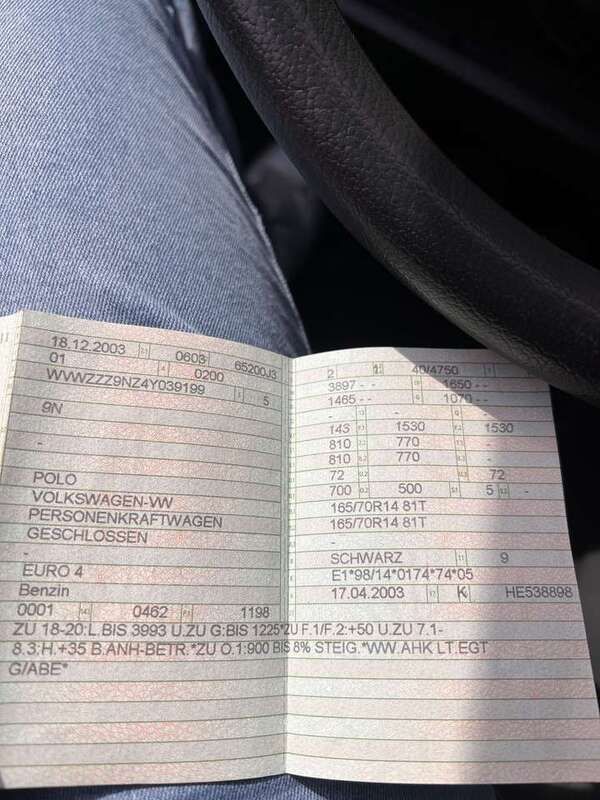 18.12.2003 2.1 0603 65200J3
01 4 0200
WVWZZZ9NZ4Y039199 3 5
9N
-
-
POLO
VOLKSWAGEN-VW
PERSONENKRAFTWAGEN
GESCHLOSSEN
-
EURO 4
Benzin
0001 14.1 0462 P.1 1198
2 40/4750
3897 - - 1650 - -
1465 - - 1070 - -
- -
143 1530 1530
810 770 -
810 770 -
72 72
700 O.2 500 S.1 5 S.2 -
165/70R14 81T
165/70R14 81T
-
SCHWARZ 11 9
E1*98/14*0174*74*05
17.04.2003 K HE538898
ZU 18-20:L.BIS 3993 U.ZU G:BIS 1225*ZU F.1/F.2:+50 U.ZU 7.1-
8.3:H.+35 B.ANH-BETR.*ZU O.1:900 BIS 8% STEIG.*WW.AHK LT.EGT
G/ABE*